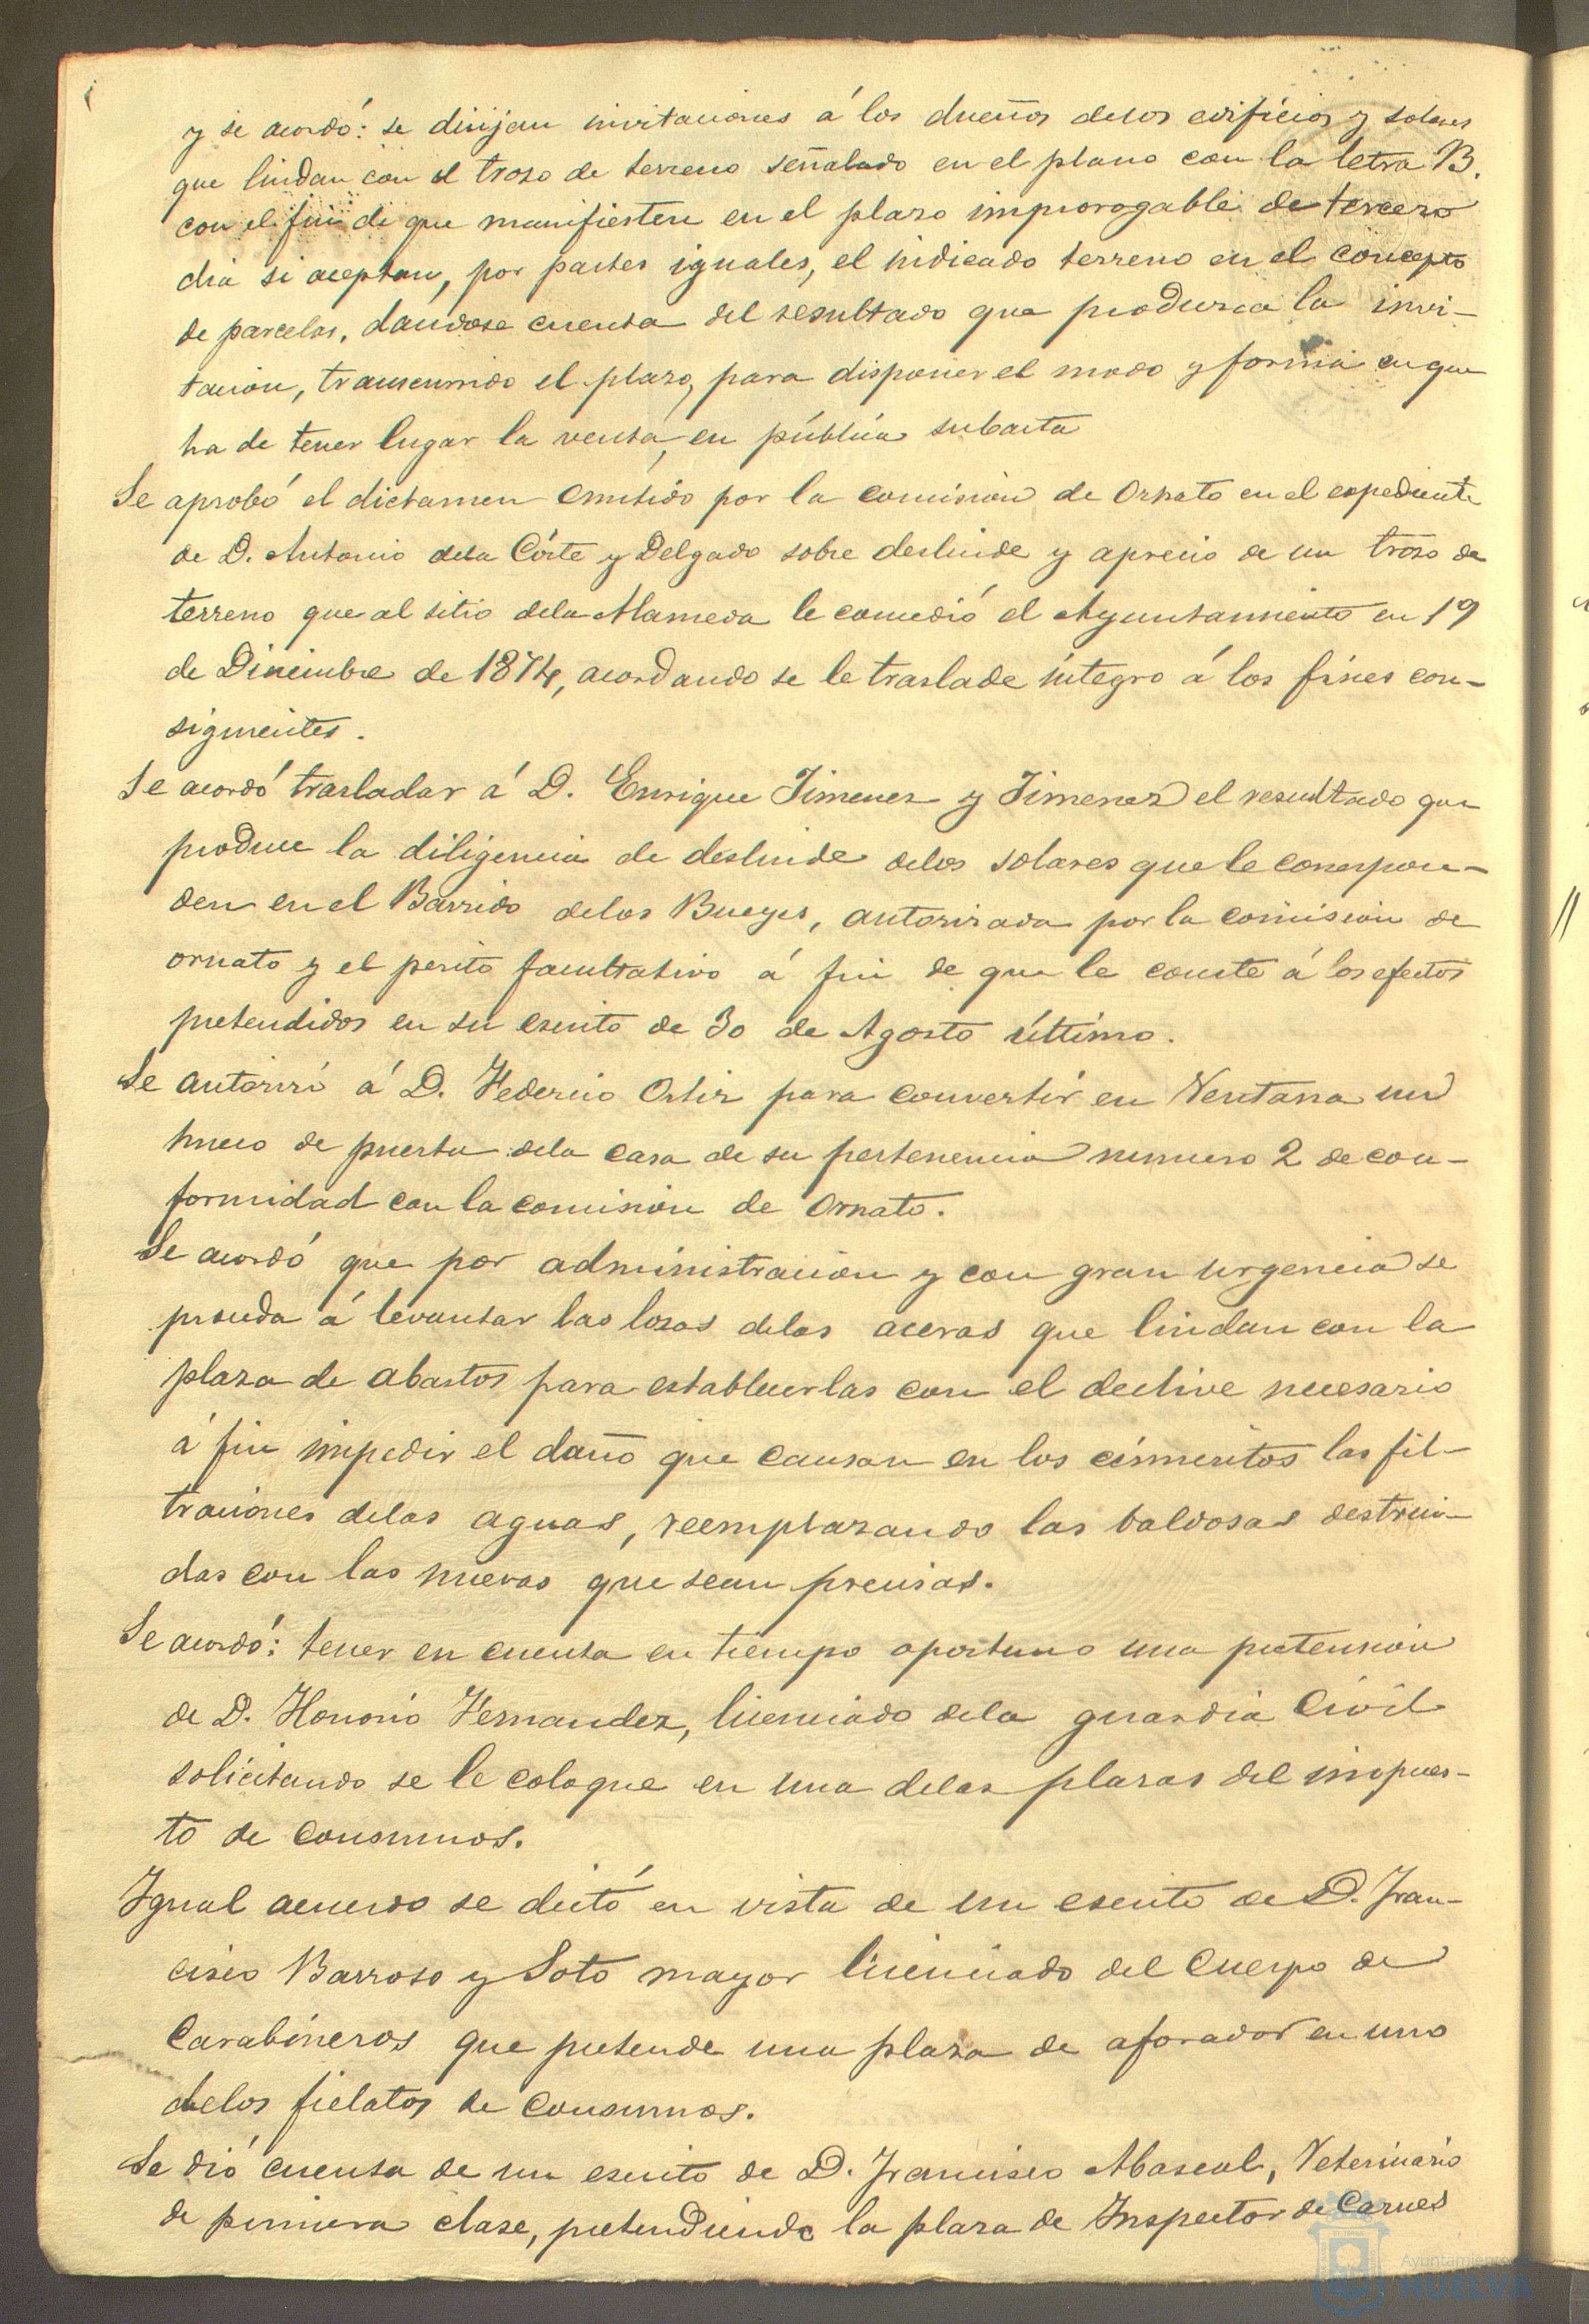 y se acordó: se dirijan invitaciones á los dueños delos edificios y solares
que lindan con el trozo de terreno señalado en el plano con la letra B.
con el fin de que manifiesten en el plazo improrogable de tercero
dia si aceptan, por partes iguales, el indicado terreno en el concepto
de parcelas, dandose cuenta del resultado que produzca la invi-
tacion, transcurrido el plazo, para disponer el modo y forma en que
ha de tener lugar la venta, en pública subasta
Se aprobó el dictamen emitido por la comision de Ornato en el espediente
de D. Antonio dela Córte y Delgado sobre deslinde y aprecio de un trozo de
terreno que al sitio dela Alameda le concedió el Ayuntamiento en 19
de Diciembre de 1874, acordando se le traslade íntegro á los fines con-
siguientes.
Se acordó trasladar á D. Enrique Jimenez y Jimenez el resultado que
produce la diligencia de deslinde delos solares que le correspon-
den en el Barrido delos Bueyes, autorizada por la comision de
ornato y el perito facultativo á fin de que le conste á los efectos
pretendidos en su escrito de 30 de Agosto último.
Se autorizó á D. Federico Ortiz para convertir en Ventana un
hueco de puerta dela casa de su pertenencia numero 2 de con-
formidad con la comision de Ornato.
Se acordó que por administracion y con gran urgencia se
proceda á levantar las losas delas aceras que lindan con la
plaza de abastos para establecerlas con el declive necesario
á fin impedir el daño que causan en los cimientos las fil-
traciones delas aguas, reemplazando las baldosas destrui-
das con las nuevas que sean precisas.
Se acordó: tener en cuenta en tiempo oportuno una pretension
de D. Honorio Fernandez, licenciado dela guardia Civil
solicitando se le coloque en una delas plazas del impues-
to de consumos.
Igual acuerdo se dictó en vista de un escrito de D. Fran-
cisco Barroso y Soto mayor licenciado del Cuerpo de
Carabineros que pretende una plaza de aforador en uno
delos fielatos de Consumos.
Se dió cuenta de un escrito de D. Francisco Abascal, Veterinario
de primera clase, pretendiendo la plaza de Inspector de Carnes
Ayuntamiento
HUELVA